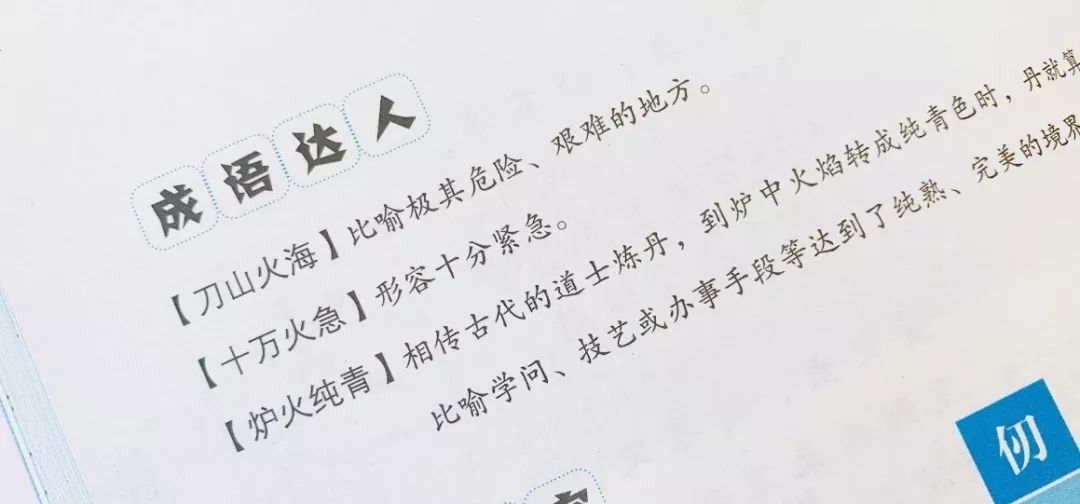 成语达人
【刀山火海】比喻极其危险、艰难的地方。
【十万火急】形容十分紧急。
【炉火纯青】相传古代的道士炼丹，到炉中火焰转成纯青色时，丹就算
比喻学问、技艺或办事手段等达到了纯熟、完美的境界
仞